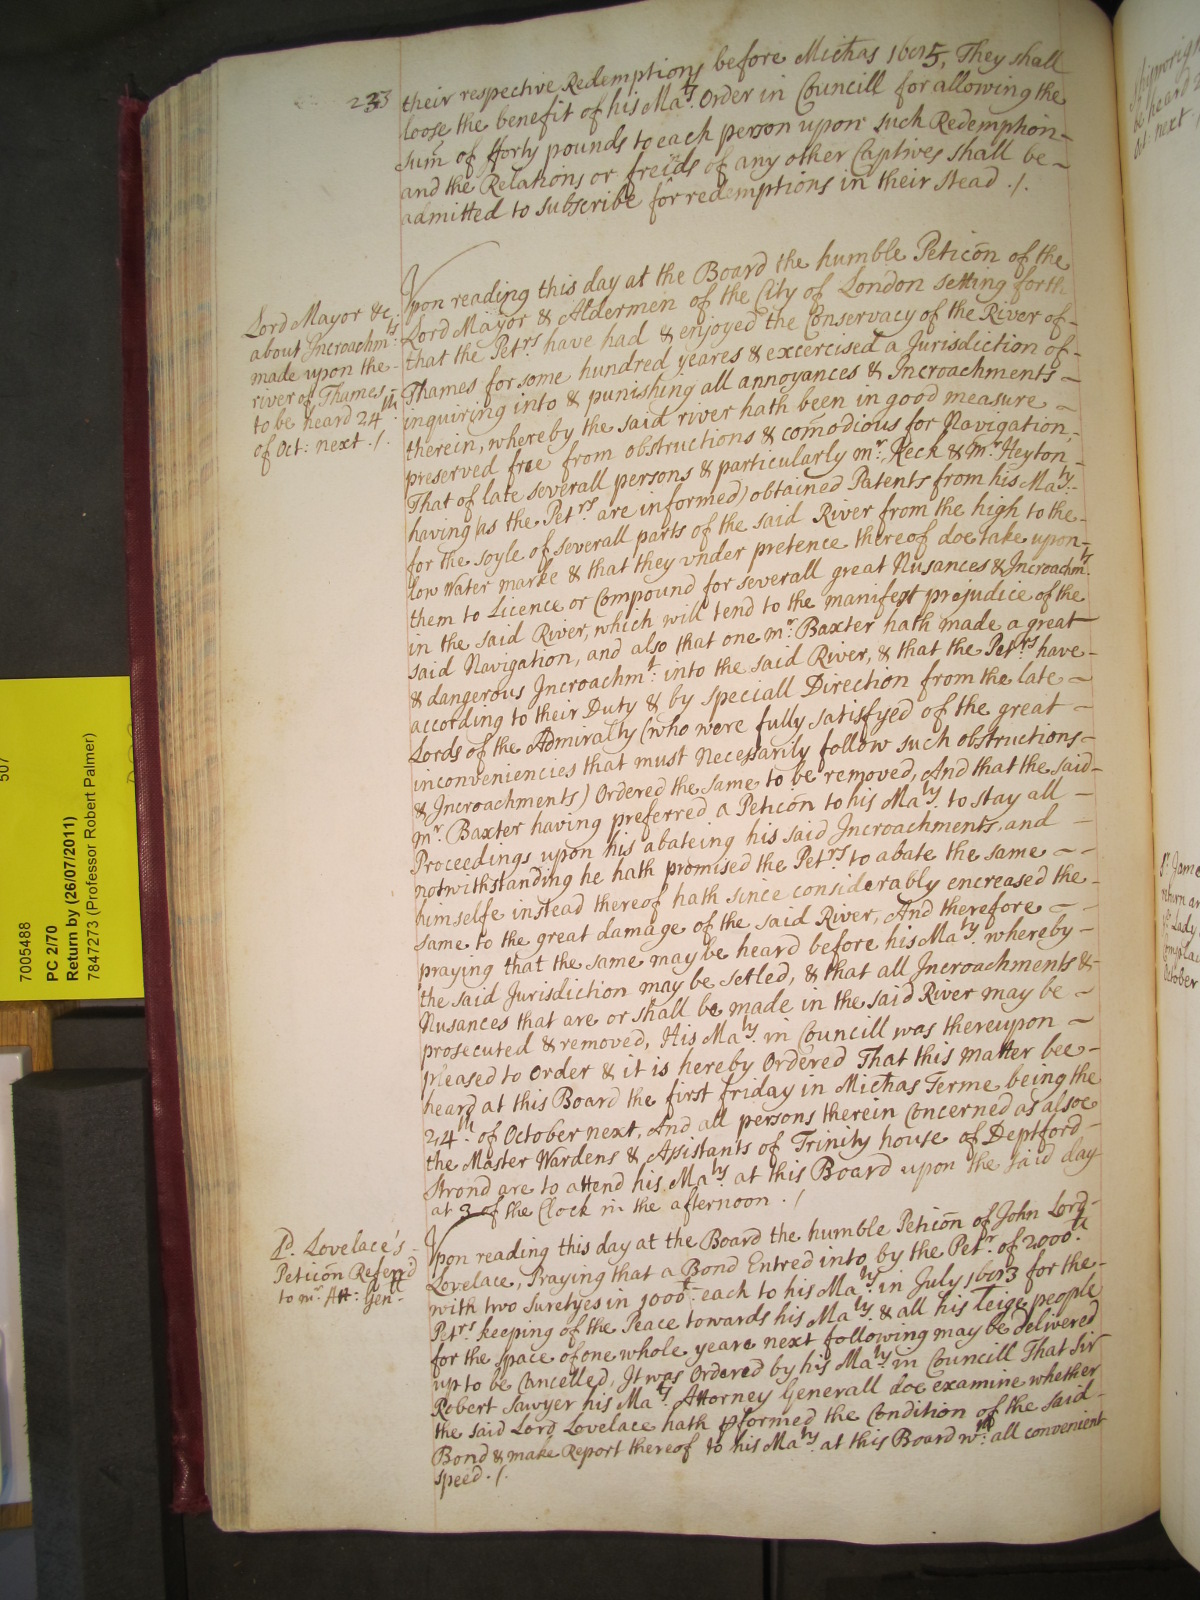 223
their respective Redemptions before Michãs 1685, They shall
loose the benefit of his Ma.ts Order in Councill for allowing the
sum̃ of fforty pounds to each person upon such Redemption-
and the Relations or freids of any other Captives shall be-
admitted to subscribe for redemptions in their stead ./.
Lord Mayor &c.
about Incroachm.ts
made upon the-
river of Thames-
to be heard 24.th
of Oct: next ./.
Vpon reading this day at the Board the humble Peticõn of the
Lord Mayor & Aldermen of the City of London setting forth
that the Pet.rs have had & enjoyed the Conservacy of the River of-
Thames for some hundred yeares & excercised a Jurisdiction of-
inquiring into & punishing all annoyances & Incroachments-
therein, whereby the said river hath been in good measure -
preserved free from obstructions & com̃odious for Navigation,-
That of late severall persons & particularly m.r Keck & m.r Heyton-
having (as the Pet.rs are informed) obtained Patents from his Ma.ty-
for the soyle of severall parts of the said River from the high to the-
low Water marke & that they vnder pretence thereof doe take upon-
them to Licence or Compound for severall great Nusances & Incroachm.ts
in the said River, which will tend to the manifest prejudice of the
said Navigation, and also that one m.r Baxter hath made a great
& dangerous Incroachm.t into the said River, & that the Pet.rs have-
according to their Duty & by speciall Direction from the late -
Lords of the Admiralty (who were fully satisfyed of the great -
inconveniencies that must Necessarily follow such obstructions-
& Incroachments) Ordered the same to be removed, And that the said-
m.r Baxter having preferred a Peticõn to his Ma.ty to stay all -
Proceedings upon his abateing his said Incroachments, and -
notwithstanding he hath promised the Pet.rs to abate the same - -
himselfe instead thereof hath since considerably encreased the-
same to the great damage of the said River, And therefore - -
praying that the same may be heard before his Ma.ty whereby-
the said Jurisdiction may be setled, & that all Incroachments &-
Nusances that are or shall be made in the said River may be -
prosecuted & removed, His Ma.ty in Councill was thereupon -
pleased to Order & it is hereby Ordered That this Matter bee-
heard at this Board the first friday in Michãs Terme being the
24.th of October next, And all persons therein Concerned as alsoe
the Master Wardens & Assistants of Trinity house of Deptford-
Strond are to attend his Ma.ty at this Board upon the said day
at 3 of the Clock in the afternoon ./
Ld. Lovelace's-
Peticõn Referr'd
to m.r Att: Gen.ll
Vpon reading this day at the Board the humble Peticõn of John Lord-
Lovelace, Praying that a Bond Entred into by the Pet.r of 2000.li
with two Suretyes in 1000.li each to his Ma.ty in July 1683 for the-
Pet.rs keeping of the Peace towards his Ma.ty & all his leige people
for the space of one whole yeare next following may be delivered
up to be Cancelled, It was Ordered by his Ma.ty in Councill That Sir
Robert Sawyer his Ma.ts Attorney Generall doe examine whether
the said Lord Lovelace hath pformed the Condition of the said-
Bond & make Report thereof to his Ma.ty at this Board w.th all convenient
speed ./.
507
7005488
PC 2/70
Return by (26/07/2011)
7847273 (Professor Robert Palmer)
be heard
Oct: next
Sr Jame
return an
Lady
October